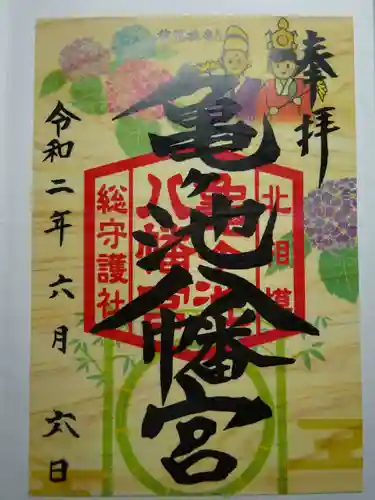 奉拝
亀ヶ池八幡宮
北相模
亀ヶ池
八幡宮
総守護社
令和二年六月六日